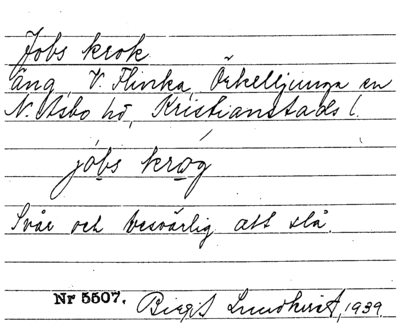 Jobs krok
äng, V. Flinka, Örkelljunga sn
N. Åsbo hd, Kristianstads l.
jóbs krog
Svår och besvärlig att slå.
Nr 5507. Birgit Lundkvist, 1939